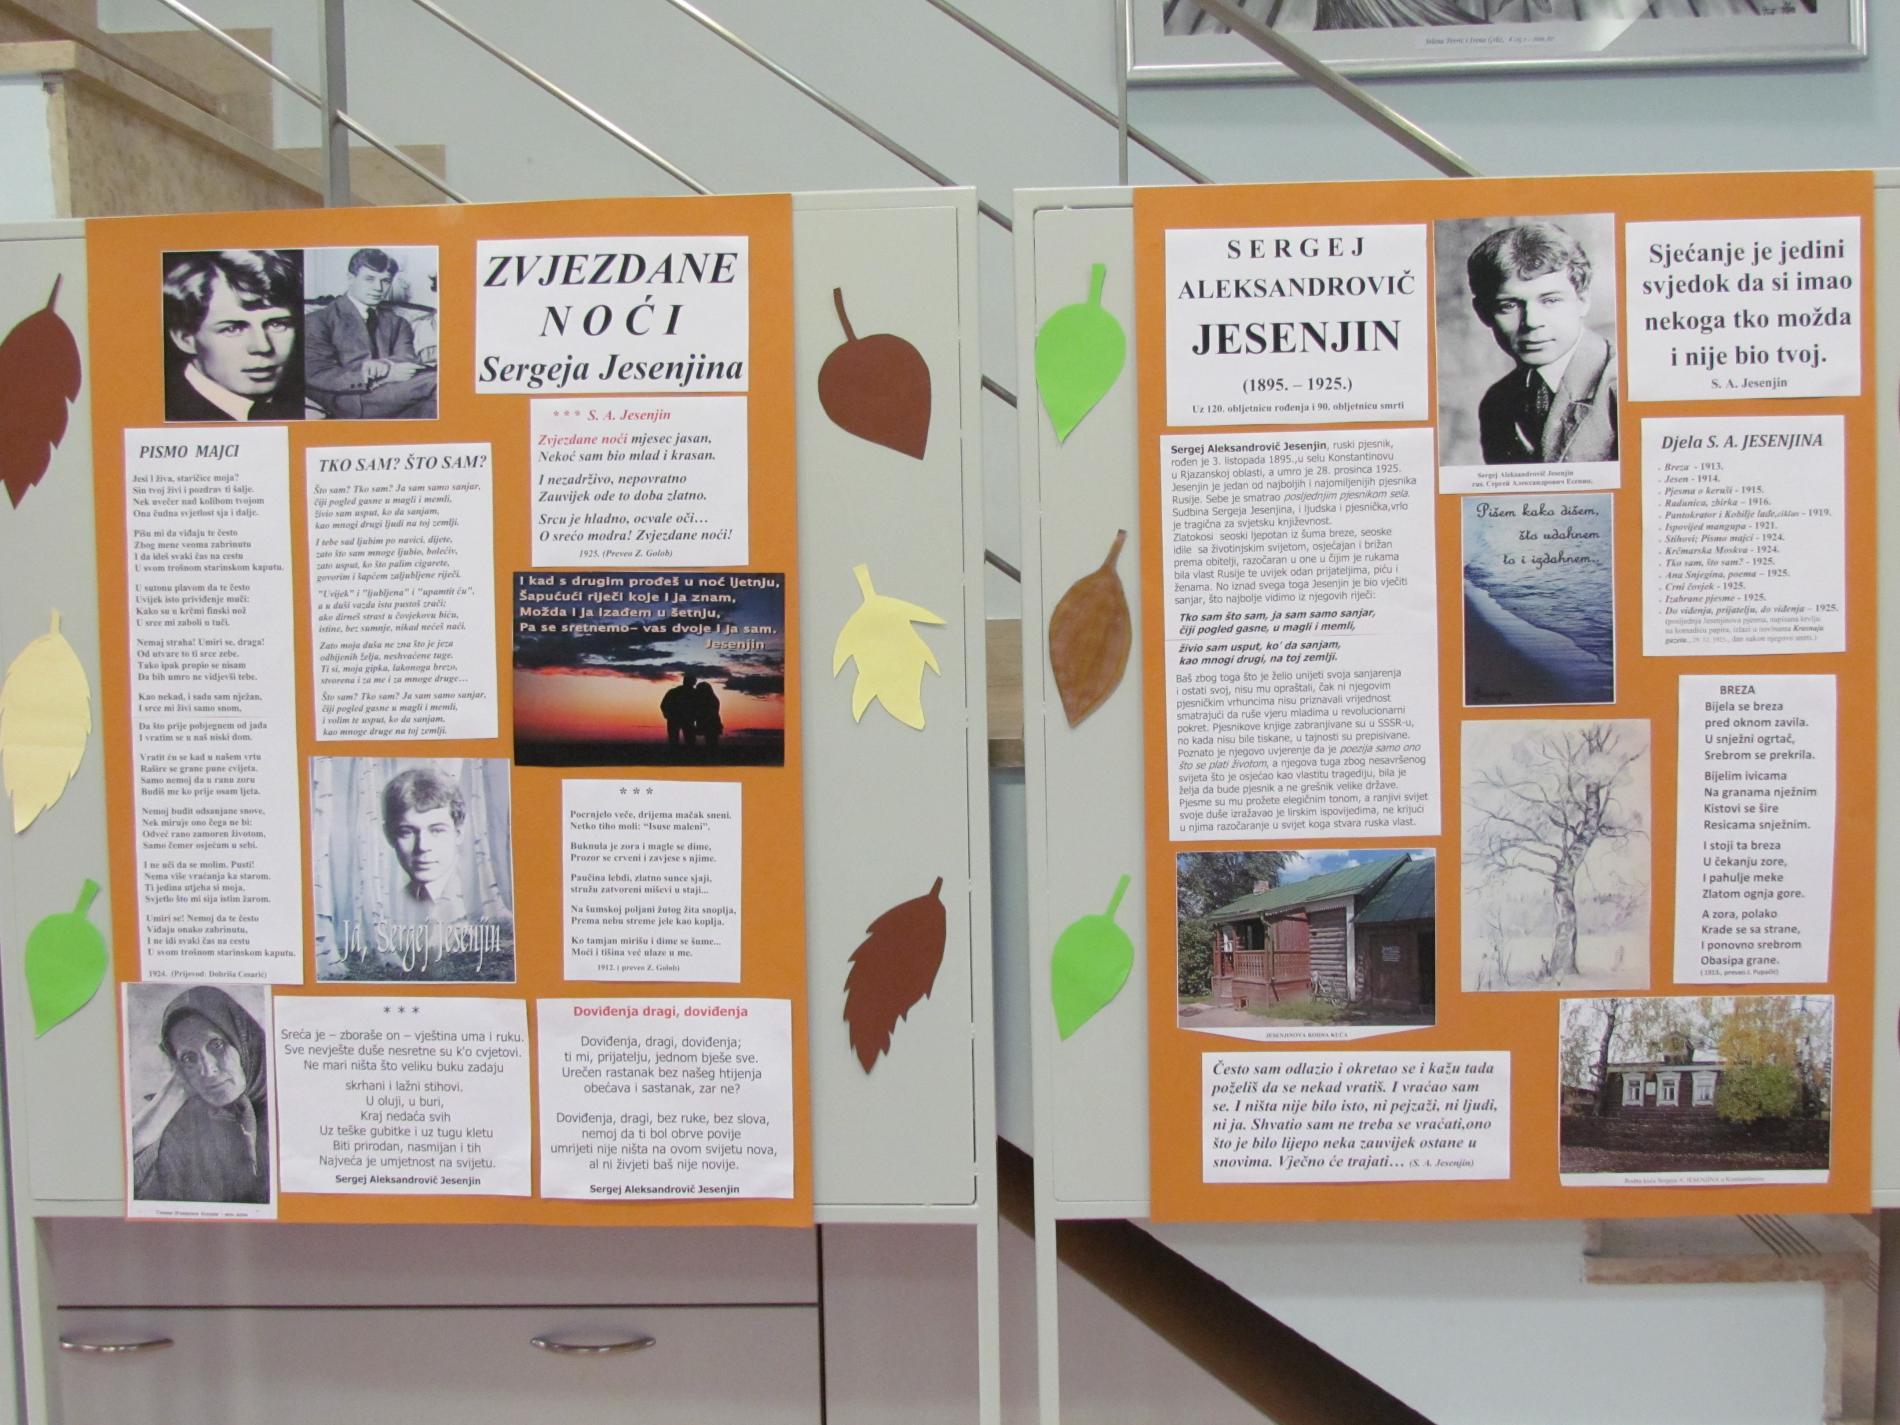 ZVJEZDANE
NOĆI
Sergeja Jesenjina
* * * S. A. Jesenjin
Zvjezdane noći mjesec jasan,
Nekoć sam bio mlad i krasan.
I nezadrživo, nepovratno
Zauvijek ode to doba zlatno.
Srcu je hladno, ocvale oči...
O srećo modra! Zvjezdane noći!
1925. (Preveo Z. Golob)
PISMO MAJCI
Jesi l živa, staričice moja?
Sin tvoj živi i pozdrav ti šalje.
Nek uvečer nad kolibom tvojom
Ona čudna svjetlost sja i dalje.
Pišu mi da viđaju te često
Zbog mene veoma zabrinutu
I da ideš svaki čas na cestu
U svom trošnom starinskom kaputu.
U sutonu plavom da te često
Uvijek isto priviđenje muči:
Kako su u krčmi finski nož
U srce mi zaboli u tuči.
Nemaj straha! Umiri se, draga!
Od utvare to ti srce zebe.
Tako ipak propio se nisam
Da bih umro ne vidjevši tebe.
Kao nekad, i sada sam nježan,
I srce mi živi samo snom,
Da što prije pobjegnem od jada
I vratim se u naš niski dom.
Vratit ću se kad u našem vrtu
Rašire se grane pune cvijeta.
Samo nemoj da u ranu zoru
Budiš me ko prije osam ljeta.
Nemoj budit odsanjane snove,
Nek miruje ono čega ne bi:
Odveć rano zamoren životom,
Samo čemer osjećam u sebi.
I ne uči da se molim. Pusti!
Nema više vraćanja ka starom.
Ti jedina utjeha si moja,
Svjetlo što mi sija istim žarom.
Umiri se! Nemoj da te često
Viđaju onako zabrinutu,
I ne idi svaki čas na cestu
U svom trošnom starinskom kaputu.
1924. (Prijevod: Dobriša Cesarić)
TKO SAM? ŠTO SAM?
Što sam? Tko sam? Ja sam samo sanjar,
čiji pogled gasne u magli i memli,
živio sam usput, ko da sanjam,
kao mnogi drugi ljudi na toj zemlji.
I tebe sad ljubim po navici, dijete,
zato što sam mnoge ljubio, bolećiv,
zato usput, ko što palim cigarete,
govorim i šapćem zaljubljene riječi.
"Uvijek" i "ljubljena" i "upamtit ću",
a u duši vazda ista pustoš zrači;
ako dirneš strast u čovjekovu biću,
istine, bez sumnje, nikad nećeš naći.
Zato moja duša ne zna što je jeza
odbijenih želja, neshvaćene tuge.
Ti si, moja gipka, lakonoga brezo,
stvorena i za me i za mnoge druge...
Što sam? Tko sam? Ja sam samo sanjar,
čiji pogled gasne u magli i memli,
i volim te usput, ko da sanjam,
kao mnoge druge na toj zemlji.
I kad s drugim prođeš u noć ljetnju,
Šapućući riječi koje i ja znam,
Možda i ja izađem u šetnju,
Pa se sretnemo– vas dvoje i ja sam.
Jesenjin
Ja, Sergej Jesenjin
* * *
Pocrnjelo veče, drijema mačak sneni.
Netko tiho moli: "Isuse maleni".
Buknula je zora i magle se dime,
Prozor se crveni i zavjese s njime.
Paučina lebdi, zlatno sunce sjaji,
stružu zatvoreni miševi u staji...
Na šumskoj poljani žutog žita snoplja,
Prema nebu streme jele kao koplja.
Ko tamjan mirišu i dime se šume...
Moći i tišina već ulaze u me.
1912. ( preveo Z. Golob)
* * *
Sreća je – zboraše on – vještina uma i ruku.
Sve nevješte duše nesretne su k'o cvjetovi.
Ne mari ništa što veliku buku zadaju
skrhani i lažni stihovi.
U oluji, u buri,
Kraj nedaća svih
Uz teške gubitke i uz tugu kletu
Biti prirodan, nasmijan i tih
Najveća je umjetnost na svijetu.
Sergej Aleksandrovič Jesenjin
Doviđenja dragi, doviđenja
Doviđenja, dragi, doviđenja;
ti mi, prijatelju, jednom bješe sve.
Urečen rastanak bez našeg htijenja
obećava i sastanak, zar ne?
Doviđenja, dragi, bez ruke, bez slova,
nemoj da ti bol obrve povije
umrijeti nije ništa na ovom svijetu nova,
al ni živjeti baš nije novije.
Sergej Aleksandrovič Jesenjin
SERGEJ
ALEKSANDROVIČ
JESENJIN
(1895. – 1925.)
Uz 120. obljetnicu rođenja i 90. obljetnicu smrti
Sergej Aleksandrovič Jesenjin
rus. Сергей Александрович Есенин,
Sjećanje je jedini
svjedok da si imao
nekoga tko možda
i nije bio tvoj.
S. A. Jesenjin
Sergej Aleksandrovič Jesenjin, ruski pjesnik,
rođen je 3. listopada 1895.,u selu Konstantinovu
u Rjazanskoj oblasti, a umro je 28. prosinca 1925.
Jesenjin je jedan od najboljih i najomiljenijih pjesnika
Rusije. Sebe je smatrao posljednjim pjesnikom sela.
Sudbina Sergeja Jesenjina, i ljudska i pjesnička,vrlo
je tragična za svjetsku književnost.
Zlatokosi seoski ljepotan iz šuma breze, seoske
idile sa životinjskim svijetom, osjećajan i brižan
prema obitelji, razočaran u one u čijim je rukama
bila vlast Rusije te uvijek odan prijateljima, piću i
ženama. No iznad svega toga Jesenjin je bio vječiti
sanjar, što najbolje vidimo iz njegovih riječi:
Tko sam što sam, ja sam samo sanjar,
čiji pogled gasne, u magli i memli,
živio sam usput, ko' da sanjam,
kao mnogi drugi, na toj zemlji.
Baš zbog toga što je želio unijeti svoja sanjarenja
i ostati svoj, nisu mu opraštali, čak ni njegovim
pjesničkim vrhuncima nisu priznavali vrijednost
smatrajući da ruše vjeru mladima u revolucionarni
pokret. Pjesnikove knjige zabranjivane su u SSSR-u,
no kada nisu bile tiskane, u tajnosti su prepisivane.
Poznato je njegovo uvjerenje da je poezija samo ono
što se plati životom, a njegova tuga zbog nesavršenog
svijeta što je osjećao kao vlastitu tragediju, bila je
želja da bude pjesnik a ne grešnik velike države.
Pjesme su mu prožete elegičnim tonom, a ranjivi svijet
svoje duše izražavao je lirskim ispovijedima, ne krijući
u njima razočaranje u svijet koga stvara ruska vlast.
Pišem kako dišem,
što udahnem
to i izdahnem..
Djela S. A. JESENJINA
Breza - 1913.
Jesen - 1914.
Pjesma o keruši - 1915.
Radunica, zbirka – 1916.
Pantokrator i Kobilje lađe,ciklus - 1919.
Ispovijed mangupa - 1921.
Stihovi; Pismo majci - 1924.
Krčmarska Moskva - 1924.
Tko sam, što sam? - 1925.
Ana Snjegina, poema – 1925.
Crni čovjek - 1925.
Izabrane pjesme - 1925.
Do viđenja, prijatelju, do viđenja – 1925.
(posljednja Jesenjinova pjesma, napisana krvlju
na komadiću papira, izlazi u novinama Krasnaja
gazeta., 29. 12. 1925., dan nakon njegove smrti.)
BREZA
Bijela se breza
pred oknom zavila.
U snježni ogrtač,
Srebrom se prekrila.
Bijelim ivicama
Na granama nježnim
Kistovi se šire
Resicama snježnim.
I stoji ta breza
U čekanju zore,
I pahulje meke
Zlatom ognja gore.
A zora, polako
Krade se sa strane,
I ponovno srebrom
Obasipa grane.
( 1913., preveo J. Pupačić)
JESENJINOVA RODNA KUĆA
Često sam odlazio i okretao se i kažu tada
poželiš da se nekad vratiš. I vraćao sam
se. I ništa nije bilo isto, ni pejzaži, ni ljudi,
ni ja. Shvatio sam ne treba se vraćati,ono
što je bilo lijepo neka zauvijek ostane u
snovima. Vječno će trajati... (S. A. Jesenjin)
Rodna kuća Sergeja A. JESENJINA u Konstantinovu